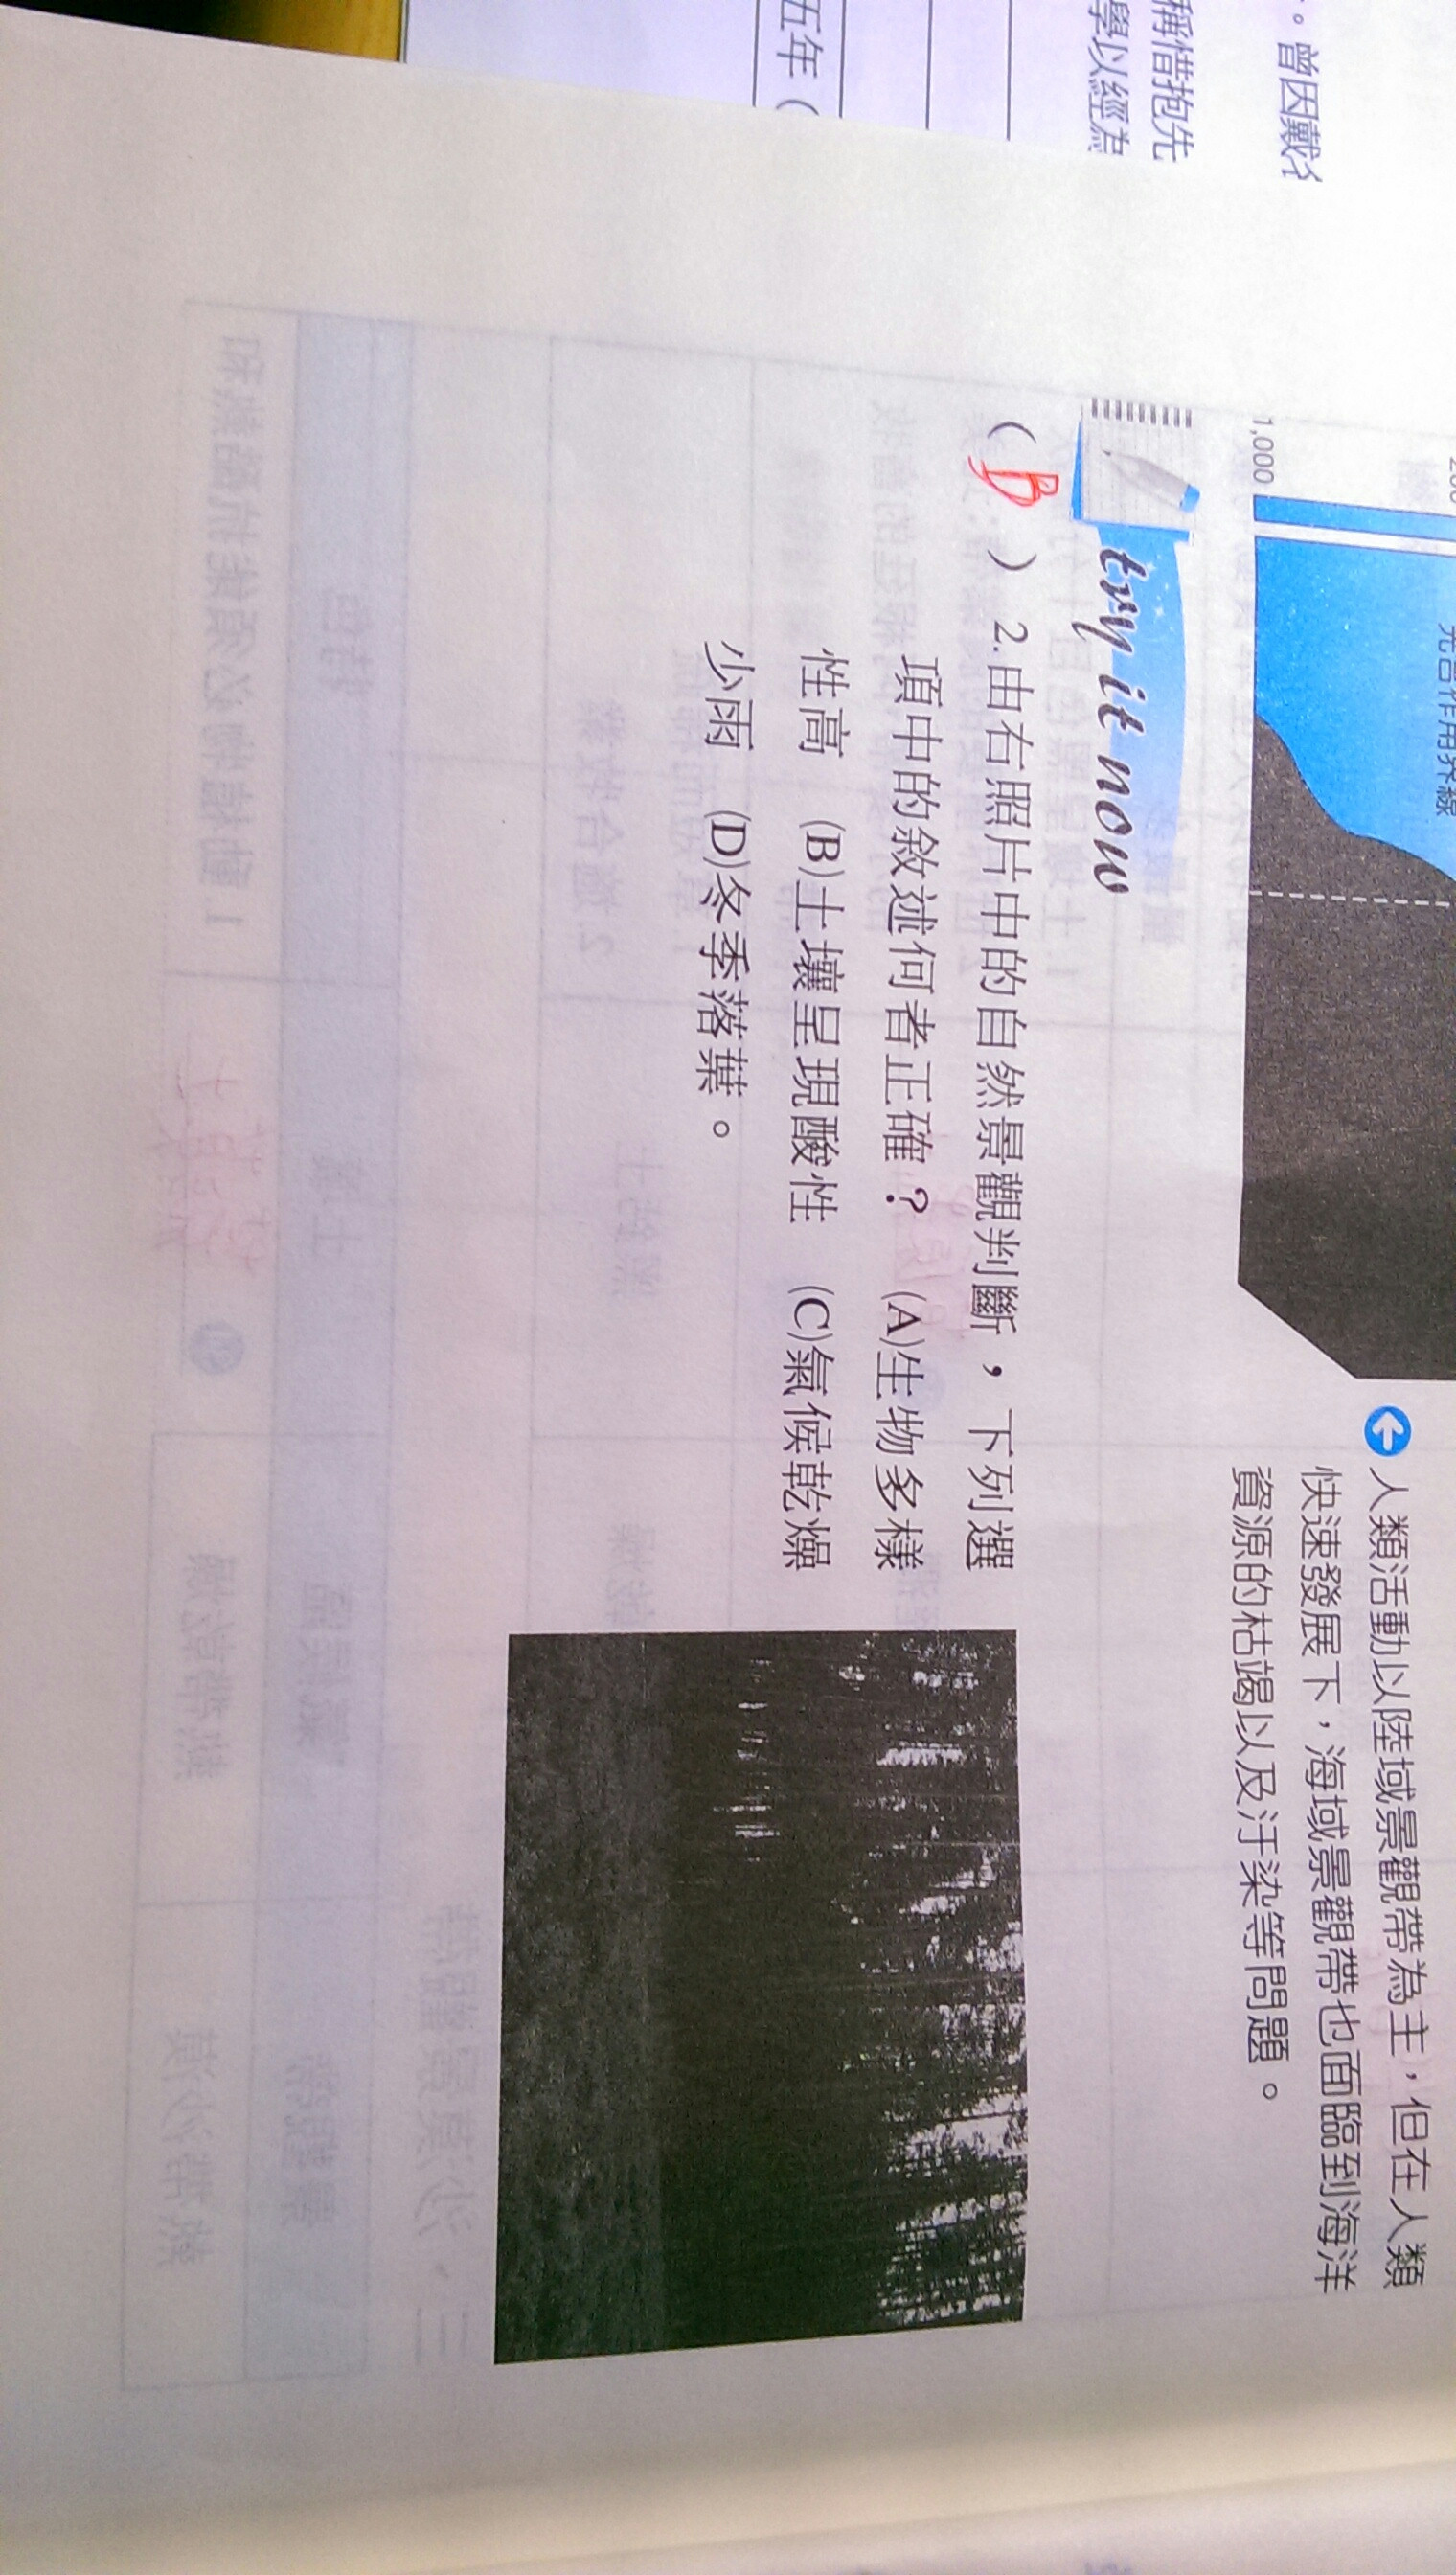 。曾因戴
稱惜抱先
學以經為
五年（
1,000
光合作用界線
人類活動以陸域景觀帶為主，但在人類
快速發展下，海域景觀帶也面臨到海洋
資源的枯竭以及汙染等問題。
try it now
（B）2.由右照片中的自然景觀判斷，下列選
項中的敘述何者正確？ (A)生物多樣
性高 (B)土壤呈現酸性 (C)氣候乾燥
少雨 (D)冬季落葉。